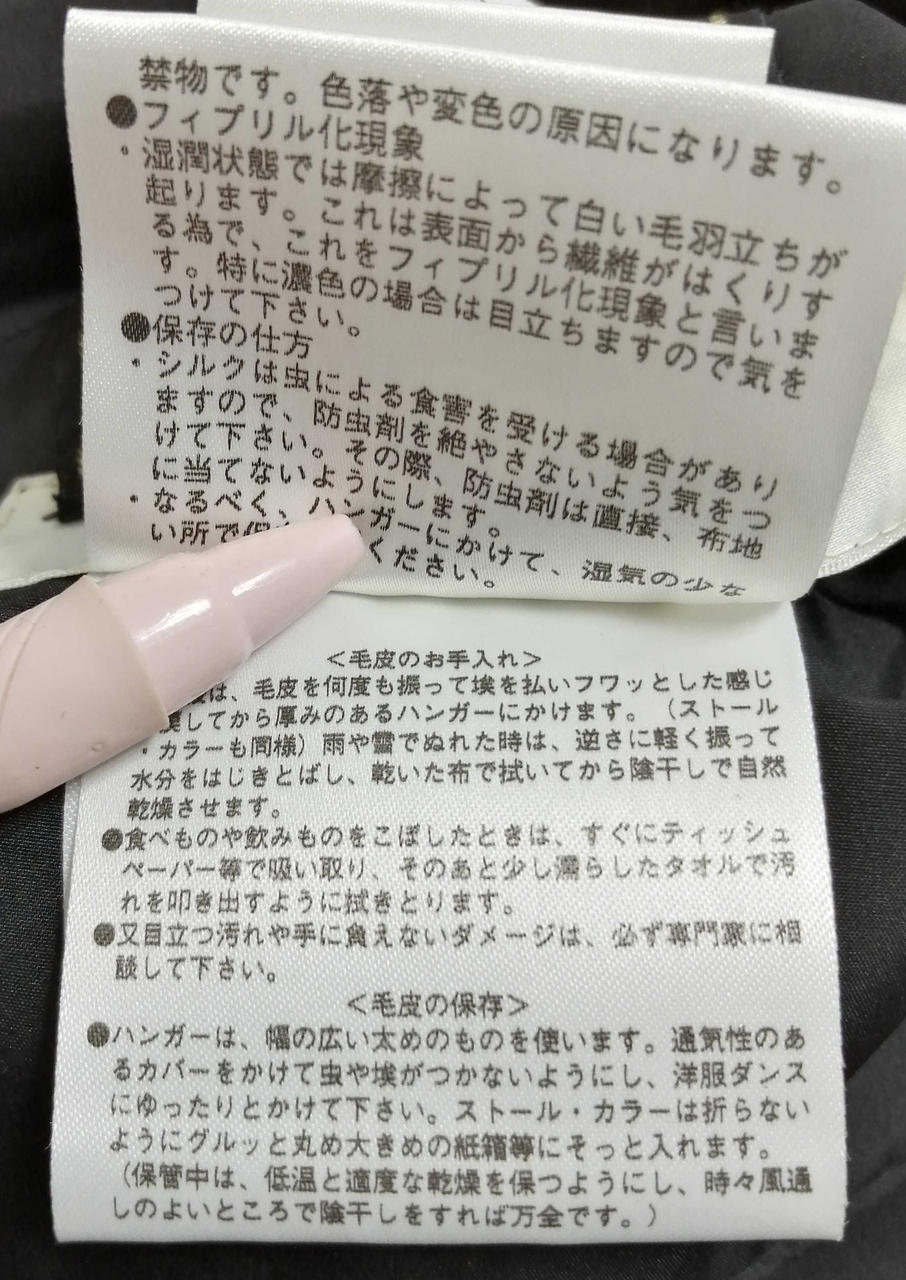 禁物です。色落や変色の原因になります。
●フィブリル化現象
・湿潤状態では摩擦によって白い毛羽立ちが
起ります。これは表面から繊維がはくりす
る為で、これをフィブリル化現象と言いま
す。特に濃色の場合は目立ちますので気を
つけて下さい。
●保存の仕方
・シルクは虫による食害を受ける場合があり
ますので、防虫剤を絶やさないよう気をつ
けて下さい。その際、防虫剤は直接、布地
に当てないようにします。
・なるべく、ハンガーにかけて、湿気の少な
い所で ください。
＜毛皮のお手入れ＞
は、毛皮を何度も振って埃を払いフワッとした感じ
してから厚みのあるハンガーにかけます。（ストール
・カラーも同様）雨や雪でぬれた時は、逆さに軽く振って
水分をはじきとばし、乾いた布で拭いてから陰干しで自然
乾燥させます。
●食べものや飲みものをこぼしたときは、すぐにティッシュ
ペーパー等で吸い取り、そのあと少し濡らしたタオルで汚
れを叩き出すように拭きとります。
●又目立つ汚れや手に負えないダメージは、必ず専門家に相
談して下さい。
＜毛皮の保存＞
●ハンガーは、幅の広い太めのものを使います。通気性のあ
るカバーをかけて虫や埃がつかないようにし、洋服ダンス
にゆったりとかけて下さい。ストール・カラーは折らない
ようにグルッと丸め大きめの紙箱等にそっと入れます。
（保管中は、低温と適度な乾燥を保つようにし、時々風通
しのよいところで陰干しをすれば万全です。）